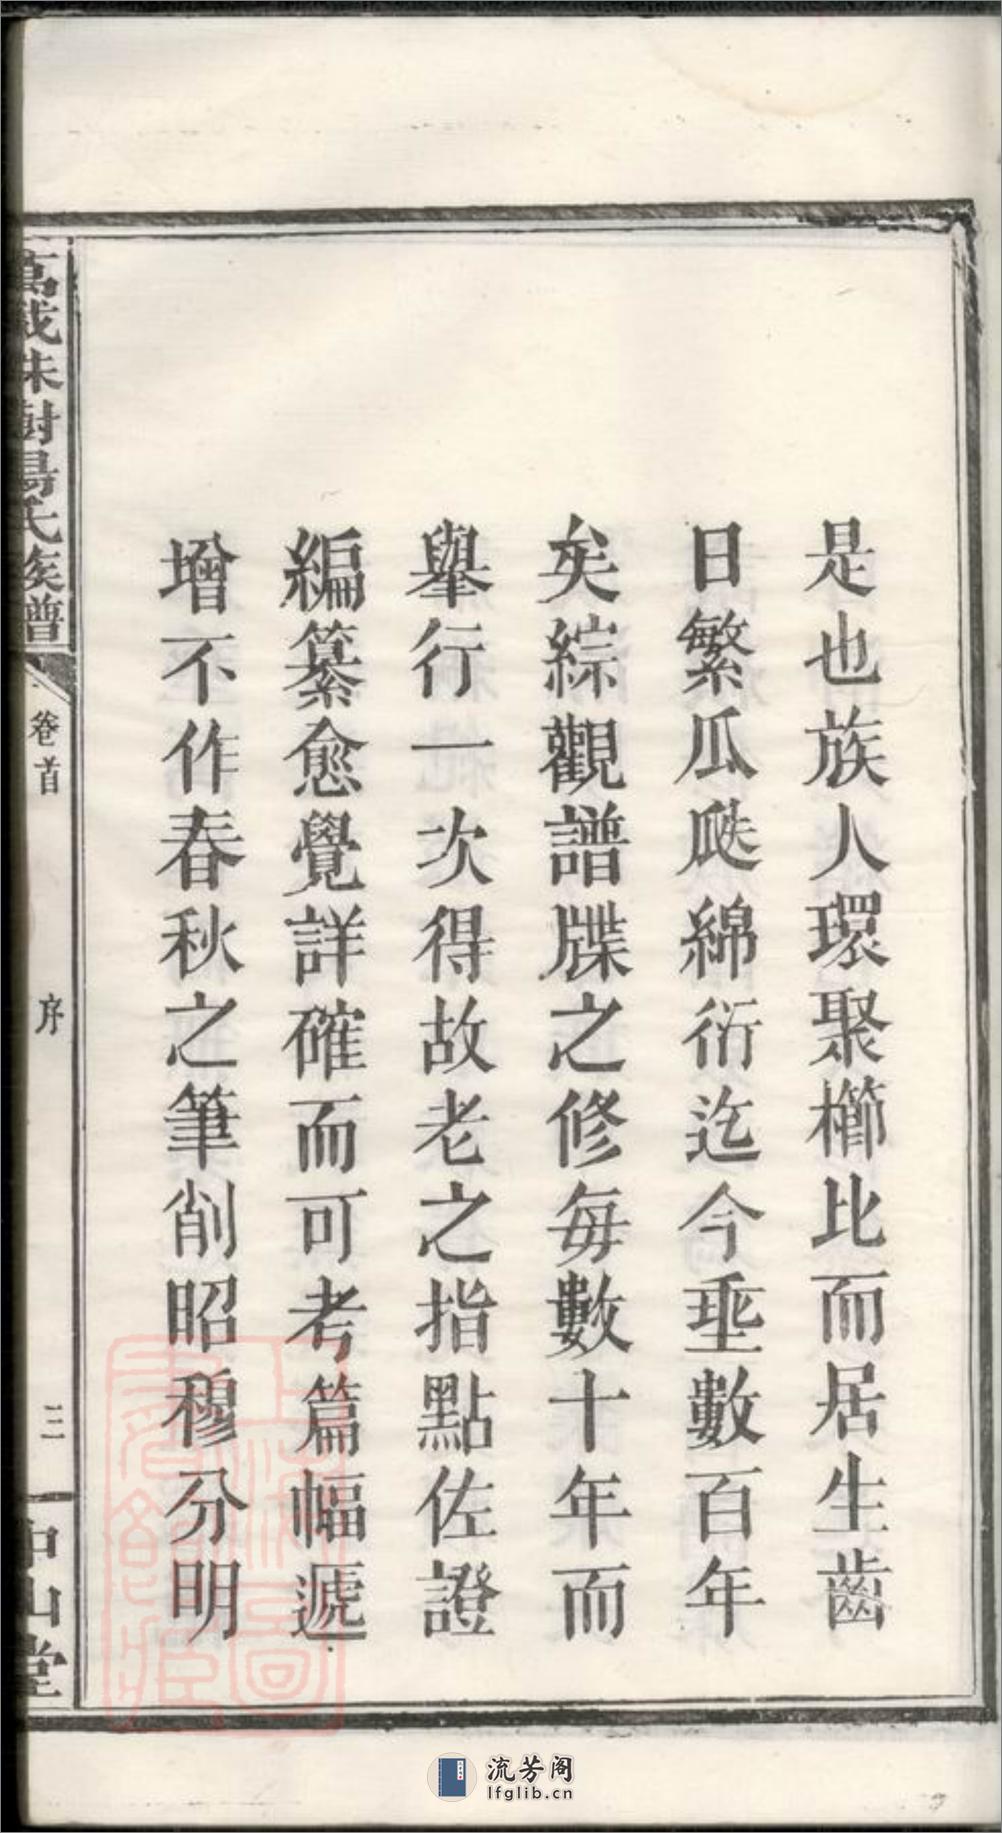 是也族人環聚櫛比而居生齒
日繁瓜瓞綿衍迄今垂數百年
矣綜觀譜牒之修每數十年而
舉行一次得故老之指點佐證
編纂愈覺詳確而可考篇幅遞
增不作春秋之筆削昭穆分明
萬載株樹易氏族譜
卷首
序
三
中山堂
流芳阁
lfglib.cn